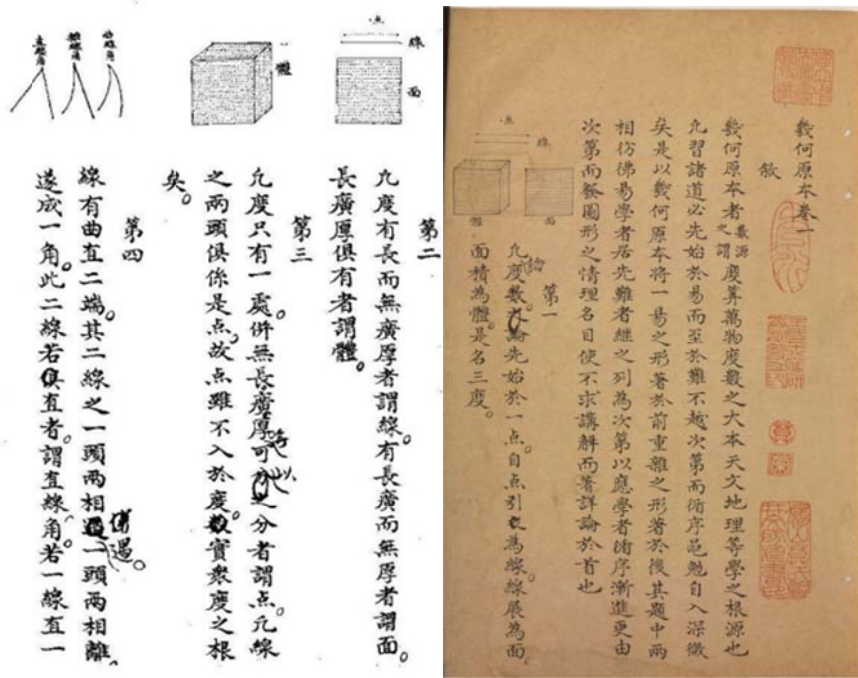 幾何原本卷一
敘
幾何原本者數源之謂度算萬物度數之大本天文地理等學之根源也
凡習諸道必先始於易而至於難不越次第而循序黽勉自入深微
矣是以幾何原本將一易之形著於前重難之形著於後其題中兩
相彷彿易學者居先難者繼之列為次第以應學者循序漸進更由
次第而發圖形之情理名目使不求講解而著詳論於首也
点
線
面
體
第一
凡度數論先始於一点自点引之為線線展為面。
面積為體是名三度。
点
線
面
體
第二
凡度有長而無廣厚者謂線。有長廣而無厚者謂面。
長廣厚俱有者謂體。
第三
凡度只有一處。併無長廣厚可以分者謂点。凡線
之兩頭俱係是点。故点雖不入於度數。實衆度之根
矣。
直線角
雜線角
曲線角
第四
線有曲直二端。其二線之一頭兩相遇。一頭兩相離。
遂成一角。此二線若俱直者。謂直線角。若一線直一